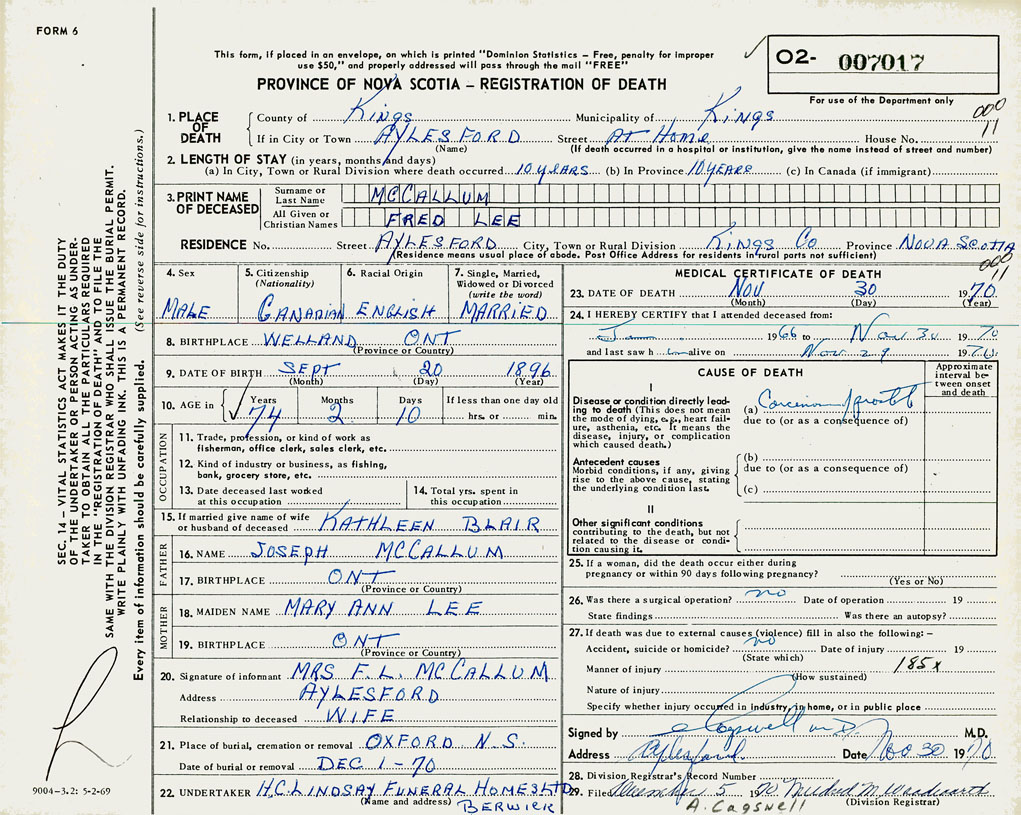 FORM 6
This form, if placed in an envelope, on which is printed "Dominion Statistics – Free, penalty for improper
use $50," and properly addressed will pass through the mail "FREE"
PROVINCE OF NOVA SCOTIA – REGISTRATION OF DEATH
02- 007017
For use of the Department only
000
11
1. PLACE OF DEATH
County of Kings Municipality of Kings
If in City or Town AYLESFORD Street At Home House No.
(Name) (If death occurred in a hospital or institution, give the name instead of street and number)
2. LENGTH OF STAY (in years, months and days)
(a) In City, Town or Rural Division where death occurred 10 YEARS (b) In Province 10 YEARS (c) In Canada (if immigrant)
3. PRINT NAME OF DECEASED
Surname or Last Name MCCALLUM
All Given or Christian Names FRED LEE
RESIDENCE No. Street AYLESFORD City, Town or Rural Division Kings Co Province NOVA SCOTIA
(Residence means usual place of abode. Post Office Address for residents in rural parts not sufficient)
000
11
4. Sex
MALE
5. Citizenship
(Nationality)
CANADIAN
6. Racial Origin
ENGLISH
7. Single, Married,
Widowed or Divorced
(write the word)
MARRIED
8. BIRTHPLACE WELLAND ONT
(Province or Country)
9. DATE OF BIRTH SEPT 20 1896
(Month) (Day) (Year)
10. AGE in Years Months Days If less than one day old
74 2 10 hrs. or min.
OCCUPATION
11. Trade, profession, or kind of work as
fisherman, office clerk, sales clerk, etc.
12. Kind of industry or business, as fishing,
bank, grocery store, etc.
13. Date deceased last worked
at this occupation
14. Total yrs. spent in
this occupation
15. If married give name of wife
or husband of deceased KATHLEEN BLAIR
FATHER
16. NAME JOSEPH MCCALLUM
17. BIRTHPLACE ONT
(Province or Country)
MOTHER
18. MAIDEN NAME MARY ANN LEE
19. BIRTHPLACE ONT
(Province or Country)
20. Signature of informant MRS F. L. MCCALLUM
Address AYLESFORD
Relationship to deceased WIFE
21. Place of burial, cremation or removal OXFORD N.S.
Date of burial or removal DEC 1-70
22. UNDERTAKER H.C. LINDSAY FUNERAL HOMES LTD
(Name and address) BERWICK
MEDICAL CERTIFICATE OF DEATH
23. DATE OF DEATH NOV 30 1970
(Month) (Day) (Year)
24. I HEREBY CERTIFY that I attended deceased from:
1966 to Nov 30 1970
and last saw h im alive on Nov. 29 1970
CAUSE OF DEATH
Approximate
interval be-
tween onset
and death
I
Disease or condition directly lead-
ing to death (This does not mean
the mode of dying, e.g., heart fail-
ure, asthenia, etc. It means the
disease, injury, or complication
which caused death.)
(a) Carcinoma prostate
due to (or as a consequence of)
Antecedent causes
Morbid conditions, if any, giving
rise to the above cause, stating
the underlying condition last.
(b)
due to (or as a consequence of)
(c)
II
Other significant conditions
contributing to the death, but not
related to the disease or condi-
tion causing it.
25. If a woman, did the death occur either during
pregnancy or within 90 days following pregnancy?
(Yes or No)
26. Was there a surgical operation? no Date of operation 19
State findings Was there an autopsy?
27. If death was due to external causes (violence) fill in also the following: –
Accident, suicide or homicide? no Date of injury 19
(State which)
Manner of injury 185x
(How sustained)
Nature of injury
Specify whether injury occurred in industry, in home, or in public place
Signed by Cogswell M.D.
Address Aylesford Date Nov 30 1970
28. Division Registrar's Record Number
29. Filed December 5 1970 Mildred M. Woodworth
(Division Registrar)
A. Cagswell
SEC. 14 – VITAL STATISTICS ACT MAKES IT THE DUTY
OF THE UNDERTAKER OR PERSON ACTING AS UNDER-
TAKER TO OBTAIN ALL THE PARTICULARS REQUIRED
IN THE "REGISTRATION OF DEATH" AND TO FILE THE
SAME WITH THE DIVISION REGISTRAR WHO SHALL ISSUE THE BURIAL PERMIT.
WRITE PLAINLY WITH UNFADING INK. THIS IS A PERMANENT RECORD.
Every item of information should be carefully supplied. (See reverse side for instructions.)
9004-3.2: 5-2-69